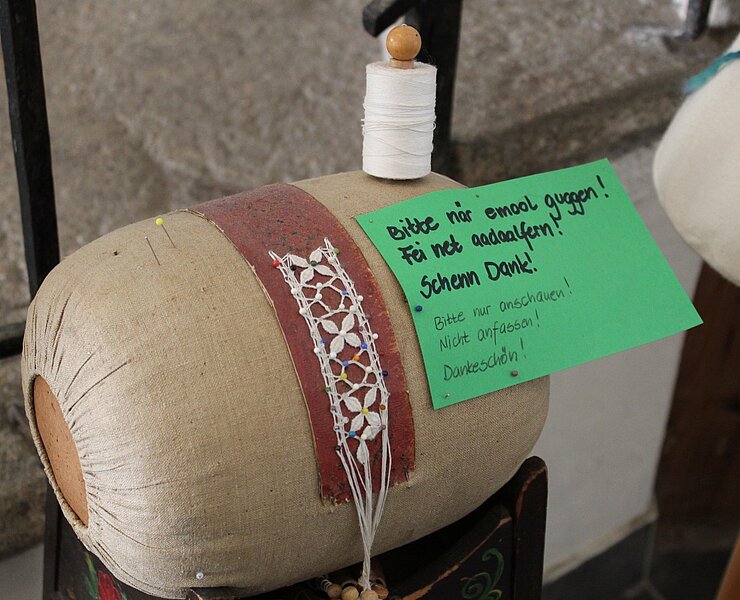 Bitte när emool guggen!
Fei net aadaalfern!
Schenn Dank!
Bitte nur anschauen!
Nicht anfassen!
Dankeschön!